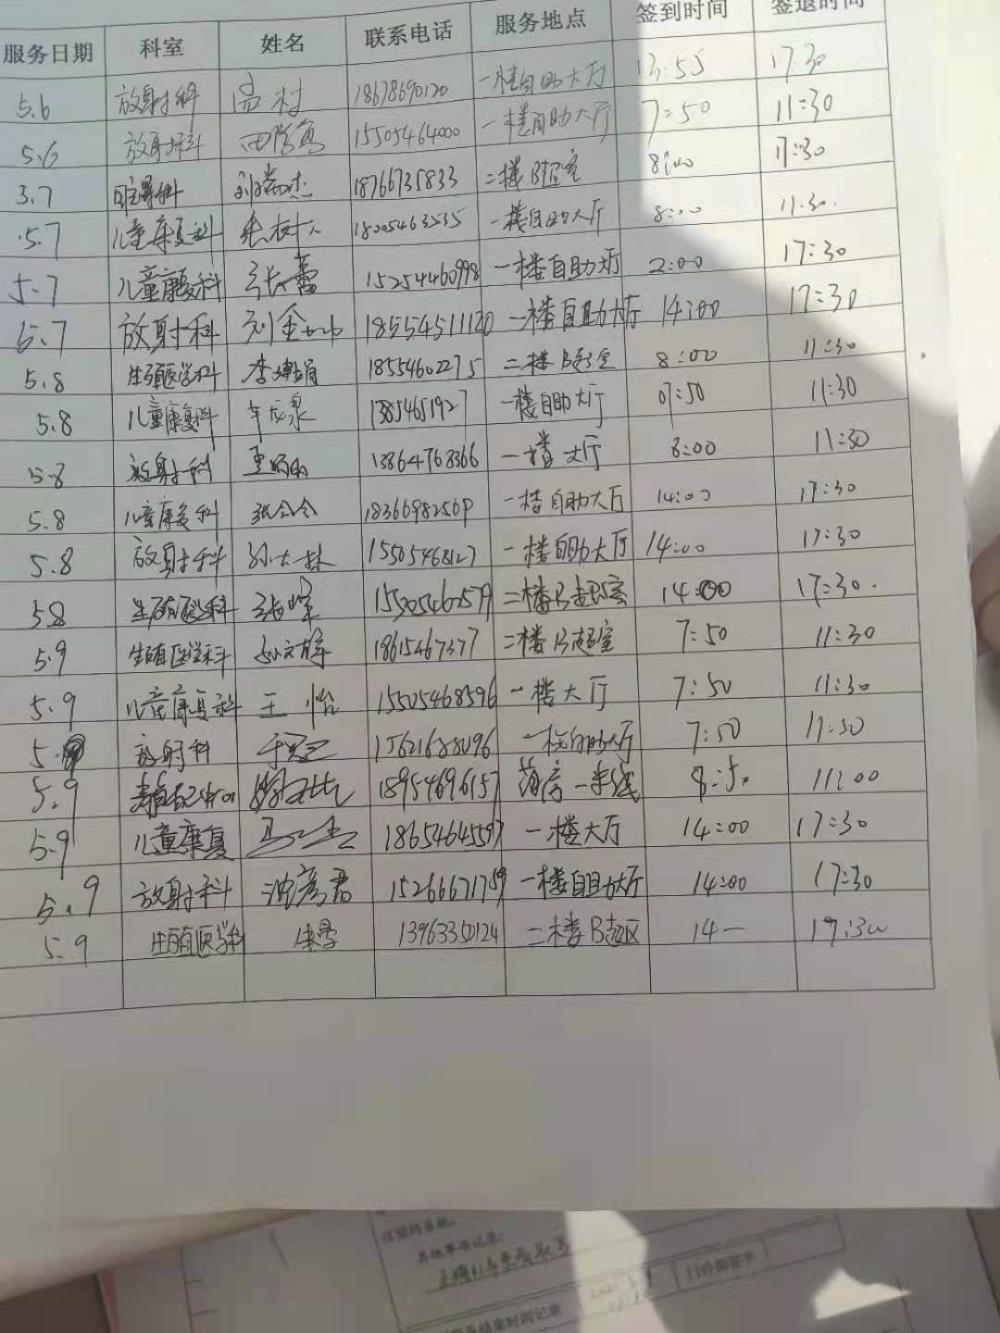 服务日期 科室 姓名 联系电话 服务地点 签到时间 签退时间
5.6 放射科 孟村 18678690120 一楼自助大厅 13:55 17:30
5.6 放射科 15505464000 一楼自助大厅 7:50 11:30
3.7 刘尚杰 18766735833 二楼B超室 8:00 17:30
5.7 儿童康复科 张树人 18005463535 一楼自助大厅 8:00 11:30.
5.7 儿童康复科 张蕾 15254460998 一楼自助大厅 2:00 17:30
5.7 放射科 18554511120 一楼自助大厅 14:00 17:30
5.8 生殖医学科 李娟 18554602275 二楼B超室 8:00 11:30
5.8 儿童康复科 13854651927 一楼自助大厅 07:50 11:30
5.8 放射科 13864768366 一楼大厅 8:00 11:30
5.8 儿童康复科 张会会 一楼自助大厅 14:00 17:30
5.8 放射科 孙大林 15505468127 一楼自助大厅 14:00 17:30
5.8 生殖医学科 张峰 二楼B超室 14:00 17:30.
5.9 生殖医学科 18615467377 二楼B超室 7:50 11:30
5.9 儿童康复科 王怡 15505468596 一楼大厅 7:50 11:30
放射科 15621688096 一楼自助大厅 7:50 11:30
5.9 18954696157 8:50 11:00
5.9 儿童康复 18654645597 一楼大厅 14:00 17:30
5.9 放射科 池彦君 一楼自助大厅 14:00 17:30
5.9 生殖医学科 13963350124 二楼B超区 14— 17:30
其他事项记录:
结束时间记录